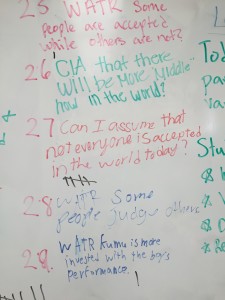 25 WATR Some
people are accepted
while others are not?
26 CIA that there
will be more middle-
how in the world?
27 Can I assume that
not everyone is accepted
in the world today?
28 WATR Some
people judge others
29. WATR Kumu is more
invested with the boys
performance.
L
Tod
pa
Stu